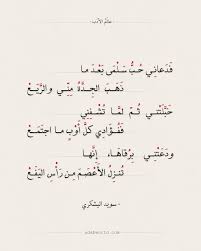 عالم الأدب
فَدَعَانِي حُبُّ سَلْمَى بَعْدَ مَا
ذَهَبَ الجِدَّةُ مِنِّي والرَّيَعْ
خَبَّلَتْنِي ثُمَّ لَمَّا تُشْفِنِي
فَفُؤَادِي كُلَّ أَوْبٍ ما اجتَمَعْ
ودَعَتْنِي بِرُقَاهَا، إِنَّها
تُنزِلُ الأَعْصَمَ مِن رَأْسِ اليَفَعْ
- سويد اليشكري